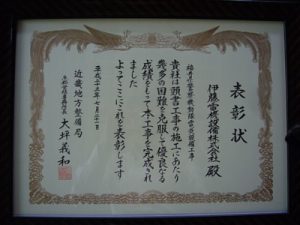 表彰状
伊藤電機設備株式会社 殿
福井県警察機動隊営繕関連工事
貴社は頭書工事の施工にあたり
幾多の困難を克服して優良なる
成績をもって本工事を完成され
ました
よってここにこれを表彰します
平成二十五年七月二十二日
近畿地方整備局
大坪義和